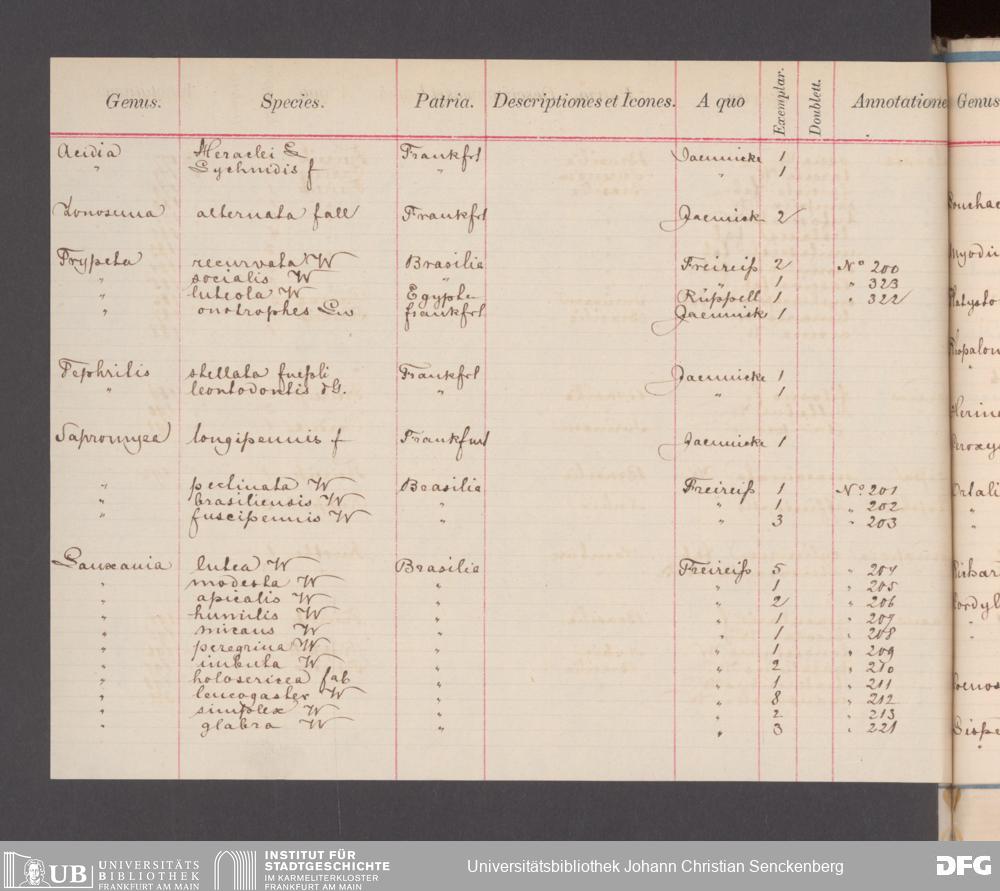 Genus. Species. Patria. Descriptiones et Icones. A quo Exemplar. Doublett. Annotatione Genus
Acidia Heraclei L Frankfrt Jaennicke 1
" Lychnidis f " " 1
Zonosema alternata fall Frankfrt Jaennicke 2
Trypeta recurvata W Brasilia Freireiß 2 No 200
" socialis W " " 1 " 323
" luteola W Egypte Rüppell 1 " 322
" onotrophes Lw frankfrt Jaennicke 1
Tephritis stellata fueßli Frankfrt Jaennicke 1
" leontodontis dG. " " 1
Sapromyza longipennis f Frankfurt Jaennicke 1
" pectinata W Brasilia Freireiß 1 No. 201
" brasiliensis W " " 1 " 202
" fuscipennis W " " 3 " 203
Lauxania lutea W Brasilia Freireiß 5 " 204
" modesta W " " 1 " 205
" apicalis W " " 2 " 206
" humilis W " " 1 " 207
" micans W " " 1 " 208
" peregrina W " " 1 " 209
" imbuta W " " 2 " 210
" holosericea fab " " 1 " 211
" leucogaster W " " 8 " 212
" simplex W " " 2 " 213
" glabra W " " 3 " 221
UB UNIVERSITÄTS
BIBLIOTHEK
FRANKFURT AM MAIN
INSTITUT FÜR
STADTGESCHICHTE
IM KARMELITERKLOSTER
FRANKFURT AM MAIN
Universitätsbibliothek Johann Christian Senckenberg
DFG